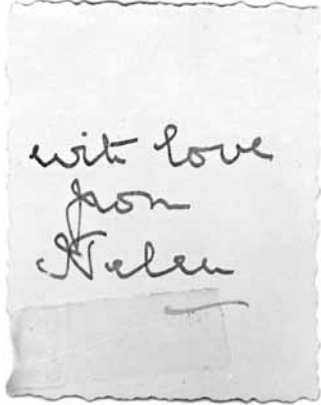 with love
from
Helen